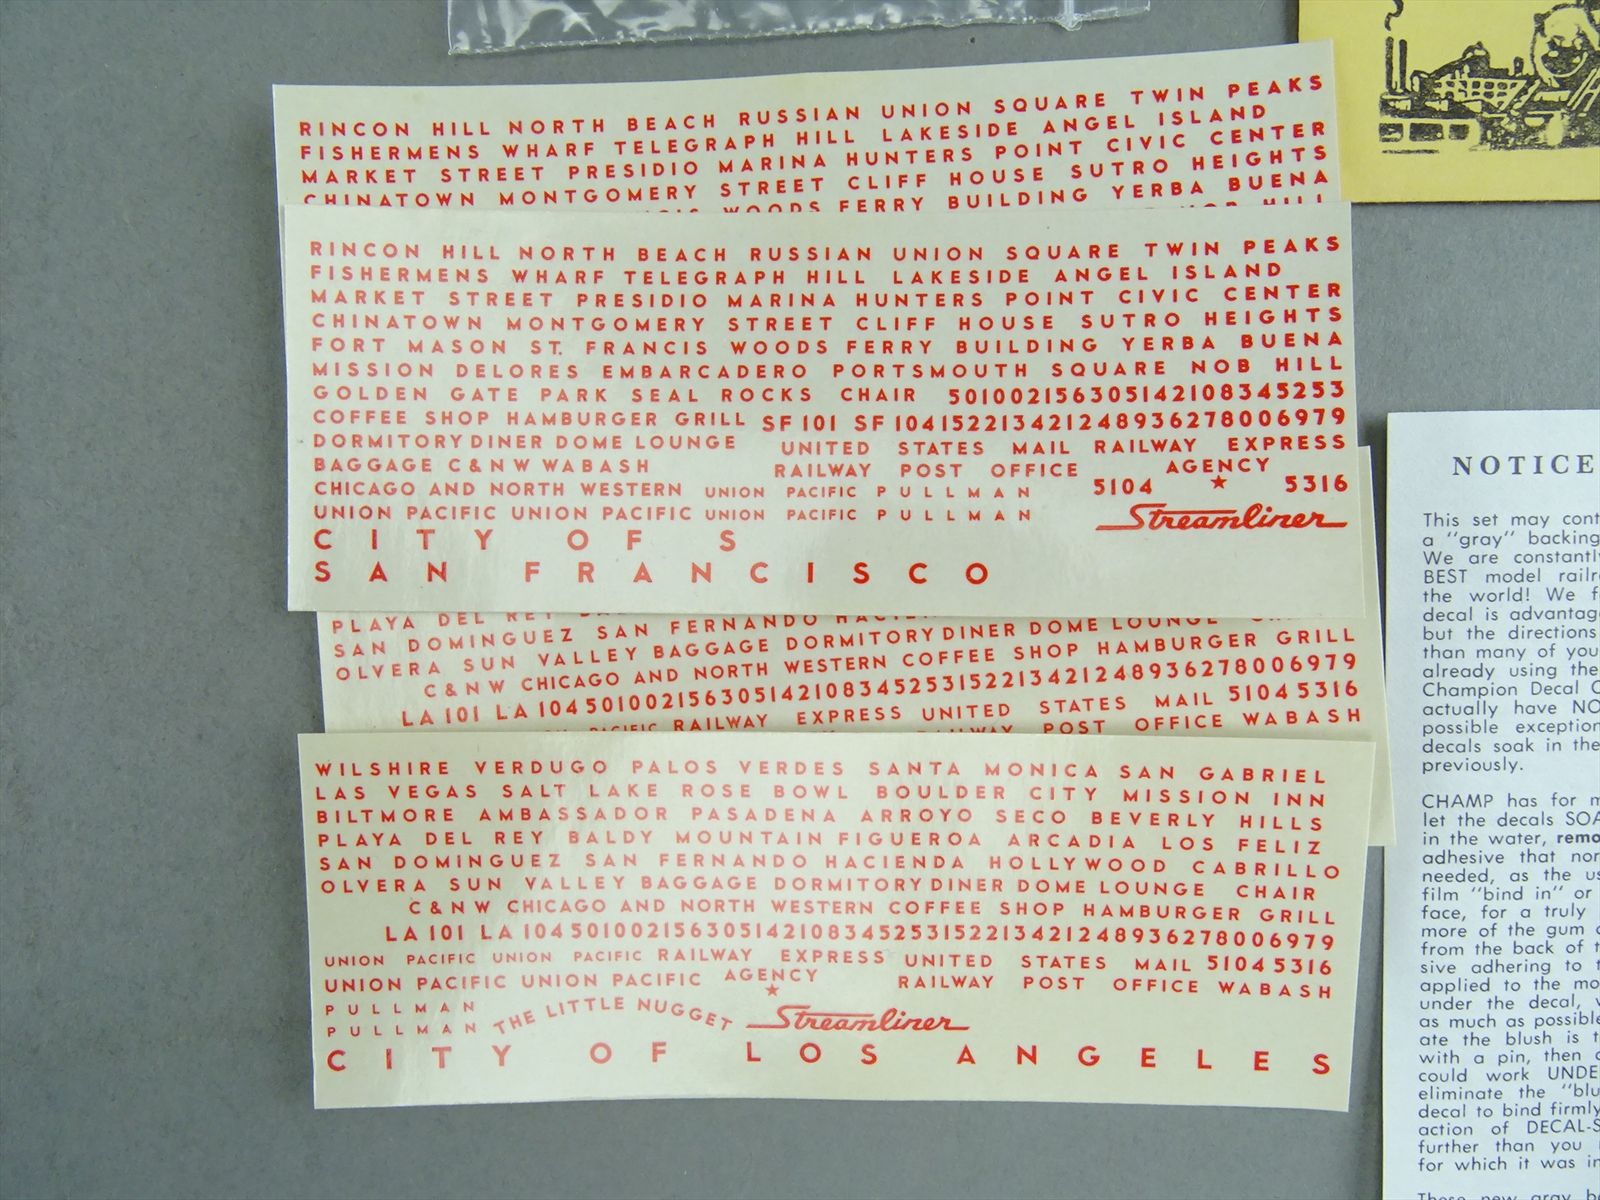 RINCON HILL NORTH BEACH RUSSIAN UNION SQUARE TWIN PEAKS
FISHERMENS WHARF TELEGRAPH HILL LAKESIDE ANGEL ISLAND
MARKET STREET PRESIDIO MARINA HUNTERS POINT CIVIC CENTER
CHINATOWN MONTGOMERY STREET CLIFF HOUSE SUTRO HEIGHTS
WOODS FERRY BUILDING YERBA BUENA
NOB HILL
RINCON HILL NORTH BEACH RUSSIAN UNION SQUARE TWIN PEAKS
FISHERMENS WHARF TELEGRAPH HILL LAKESIDE ANGEL ISLAND
MARKET STREET PRESIDIO MARINA HUNTERS POINT CIVIC CENTER
CHINATOWN MONTGOMERY STREET CLIFF HOUSE SUTRO HEIGHTS
FORT MASON ST. FRANCIS WOODS FERRY BUILDING YERBA BUENA
MISSION DELORES EMBARCADERO PORTSMOUTH SQUARE NOB HILL
GOLDEN GATE PARK SEAL ROCKS CHAIR 501002156305142108345253
COFFEE SHOP HAMBURGER GRILL SF 101 SF 1041522134212489362780069 79
DORMITORY DINER DOME LOUNGE UNITED STATES MAIL RAILWAY EXPRESS
BAGGAGE C&NW WABASH RAILWAY POST OFFICE AGENCY
CHICAGO AND NORTH WESTERN UNION PACIFIC PULLMAN 5104 ★ 5316
UNION PACIFIC UNION PACIFIC UNION PACIFIC PULLMAN Streamliner
CITY OF S
SAN FRANCISCO
PLAYA DEL REY
SAN DOMINGUEZ SAN FERNANDO HACIENDA
OLVERA SUN VALLEY BAGGAGE DORMITORY DINER DOME LOUNGE
C&NW CHICAGO AND NORTH WESTERN COFFEE SHOP HAMBURGER GRILL
LA 101 LA 104501002156305142108345253152213421248936278006979
PACIFIC RAILWAY EXPRESS UNITED STATES MAIL 5104 5316
RAILWAY POST OFFICE WABASH
WILSHIRE VERDUGO PALOS VERDES SANTA MONICA SAN GABRIEL
LAS VEGAS SALT LAKE ROSE BOWL BOULDER CITY MISSION INN
BILTMORE AMBASSADOR PASADENA ARROYO SECO BEVERLY HILLS
PLAYA DEL REY BALDY MOUNTAIN FIGUEROA ARCADIA LOS FELIZ
SAN DOMINGUEZ SAN FERNANDO HACIENDA HOLLYWOOD CABRILLO
OLVERA SUN VALLEY BAGGAGE DORMITORY DINER DOME LOUNGE CHAIR
C&NW CHICAGO AND NORTH WESTERN COFFEE SHOP HAMBURGER GRILL
LA 101 LA 104501002156305142108345253152213421248936278006979
UNION PACIFIC UNION PACIFIC RAILWAY EXPRESS UNITED STATES MAIL 5104 5316
UNION PACIFIC UNION PACIFIC AGENCY RAILWAY POST OFFICE WABASH
PULLMAN ★
PULLMAN THE LITTLE NUGGET Streamliner
CITY OF LOS ANGELES
NOTICE
This set may
a "gray" backing
We are constantly
BEST model
the world! We
decal is
but the directions
than many of you
already using the
Champion Decal
actually have
possible
decals soak in the
previously.
CHAMP has for
let the decals
in the water,
adhesive that
needed, as the
film "bind in" or
face, for a truly
more of the gum
from the back of
sive adhering to
applied to the
under the decal,
as much as possible
ate the blush is
with a pin, then
could work
eliminate the
decal to bind firmly
action of
further than you
for which it was
These new gray